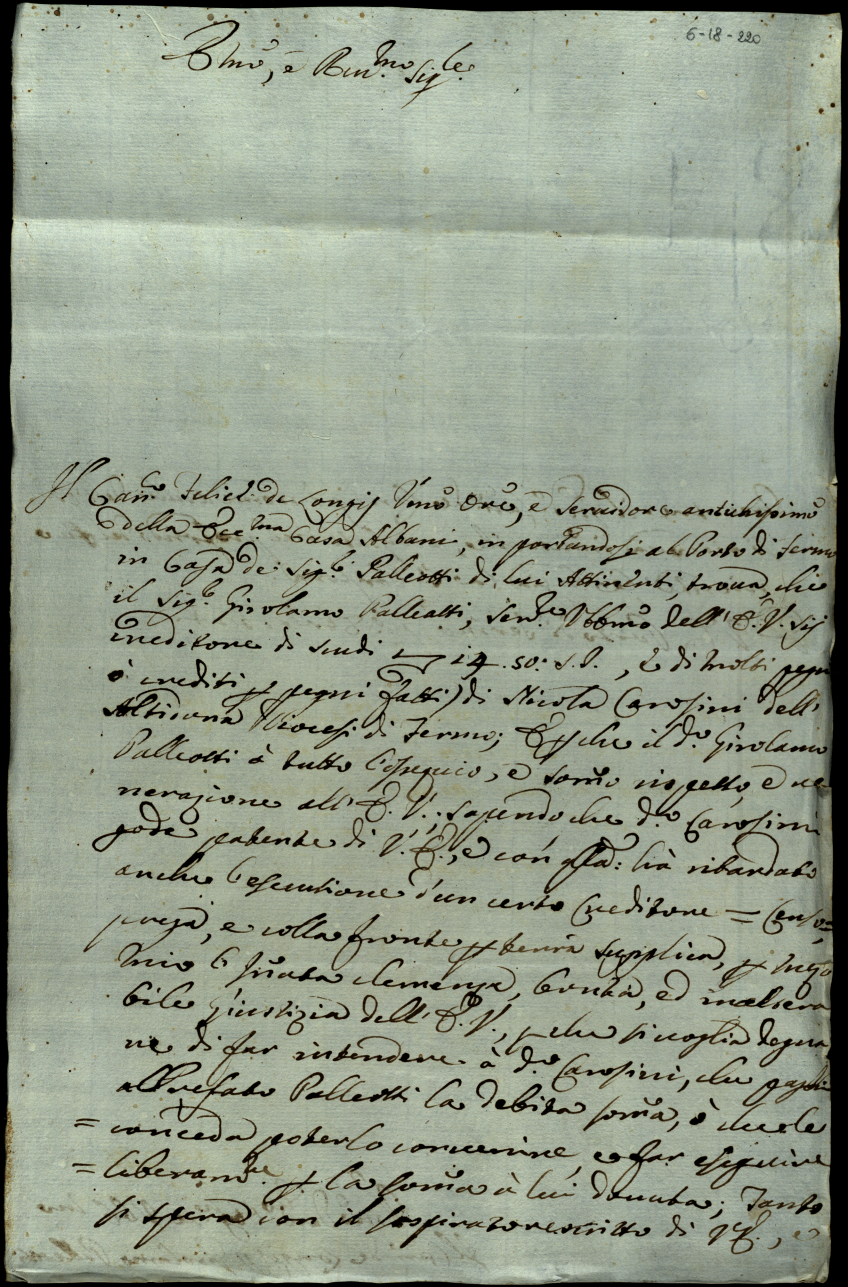 6-18-220
Illmo, e Rev.mo Sig.re
Il Can.co Felice de Longis Umo Ore, e Servidore antichissimo
della Ecc.ma Casa Albani, in portandosi al Porto di Fermo
in Casa de' Sig.ri Palleotti di lui Attinenti, trova, che
il Sig.r Girolamo Palleotti, Ser.re Obbmo dell' E. V. sij
creditore di scudi 14.50: , e di molti pegni
ò crediti p pegni fatti) di Nicola Carosini dell'
Altidona Diocesi di Fermo; E p che il d.o Girolamo
Palleotti à tutto l'ossequio, e somo rispetto, e ve
nerazione all' E. V., sapendo che d.o Carosini
gode patente di V. E., e con qsta: hà ritardato
anche l'esecutione d'un certo Creditore = Censo =
prega, e colla fronte p terra supplica, p mezo
mio l' innata clemenza, bontà, ed inaltera
bile Giustizia dell' E. V., p che si voglia degna
re di far intendere à d.o Carosini, che paghi
al Palleotti la debita soma, ò che le
= conceda poterlo convenire, e far eseguire
= liberam.te p la soma à lui dovuta; Tanto
si spera con il sospirato rescritto di V. E., e